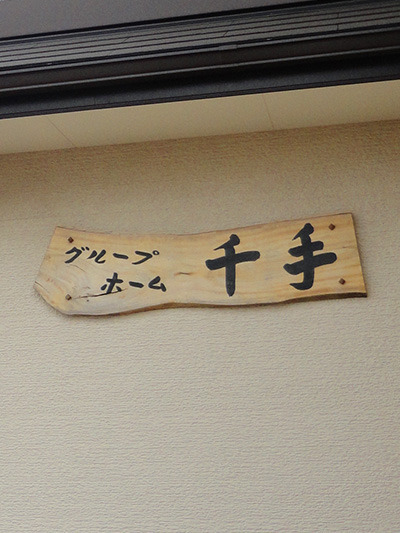 グループ
ホーム
千手